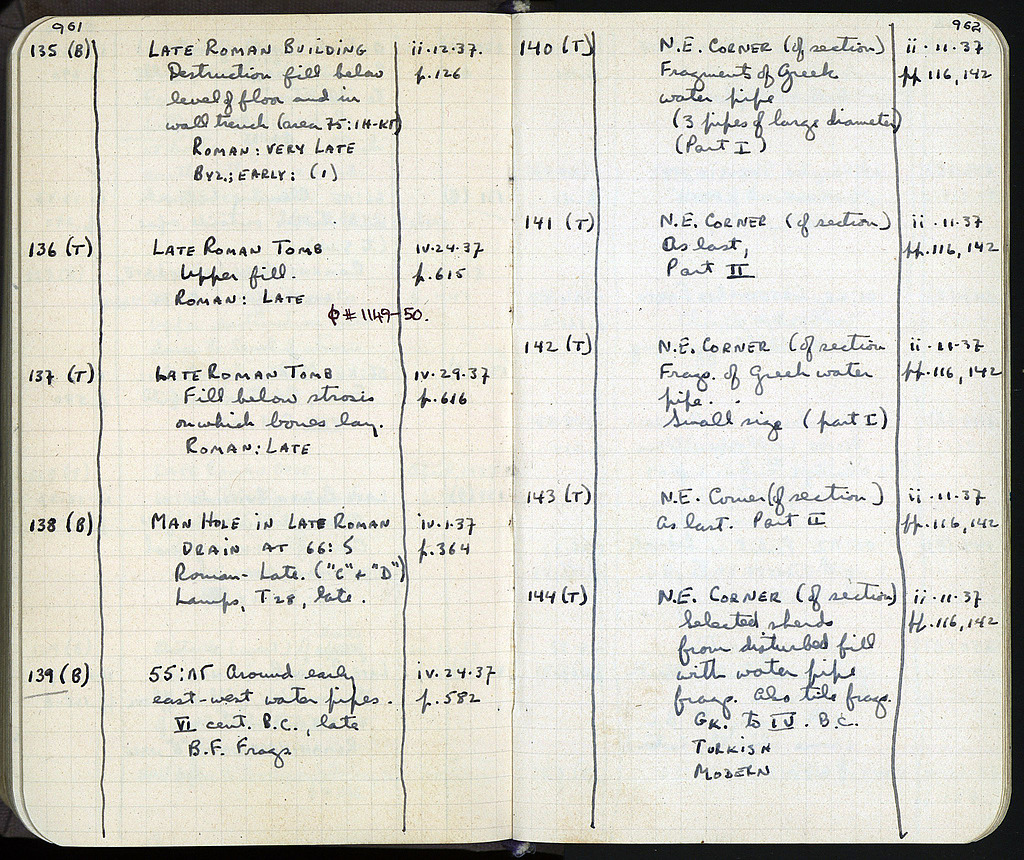 961
135 (B) LATE ROMAN BUILDING ii.12.37.
Destruction fill below p.126
level of floor and in
wall trench (area 75:1H-KΓ)
ROMAN: VERY LATE
BYZ.; EARLY: (1)
136 (T) LATE ROMAN TOMB iv.24.37
Upper fill. p.615
ROMAN: LATE
φ # 1149-50.
137 (T) LATE ROMAN TOMB iv.29.37
Fill below strosis p.616
on which bones lay.
ROMAN: LATE
138 (B) MAN HOLE IN LATE ROMAN iv.1.37
DRAIN AT 66: p.364
Roman-Late. ("C" + "D")
Lamps, T28, late.
139 (B) 55: Around early iv.24.37
east-west water pipes. p.582
VI cent. B.C., late
B.F. Frags
962
140 (T) N.E. CORNER (of section) ii.11.37
Fragments of Greek pp.116,142
water pipe
(3 pipes of large diameter)
(Part I)
141 (T) N.E. CORNER (of section) ii.11.37
As last, pp.116,142
Part II
142 (T) N.E. CORNER (of section ii.11.37
Frags. of Greek water pp.116,142
pipe.
Small size (part I)
143 (T) N.E. Corner (of section) ii.11.37
as last. Part II pp.116,142
144 (T) N.E. CORNER (of section) ii.11.37
Selected sherds pp.116,142
from disturbed fill
with water pipe
frags. Also tile frags.
GK. TO IV. B.C.
TURKISH
MODERN